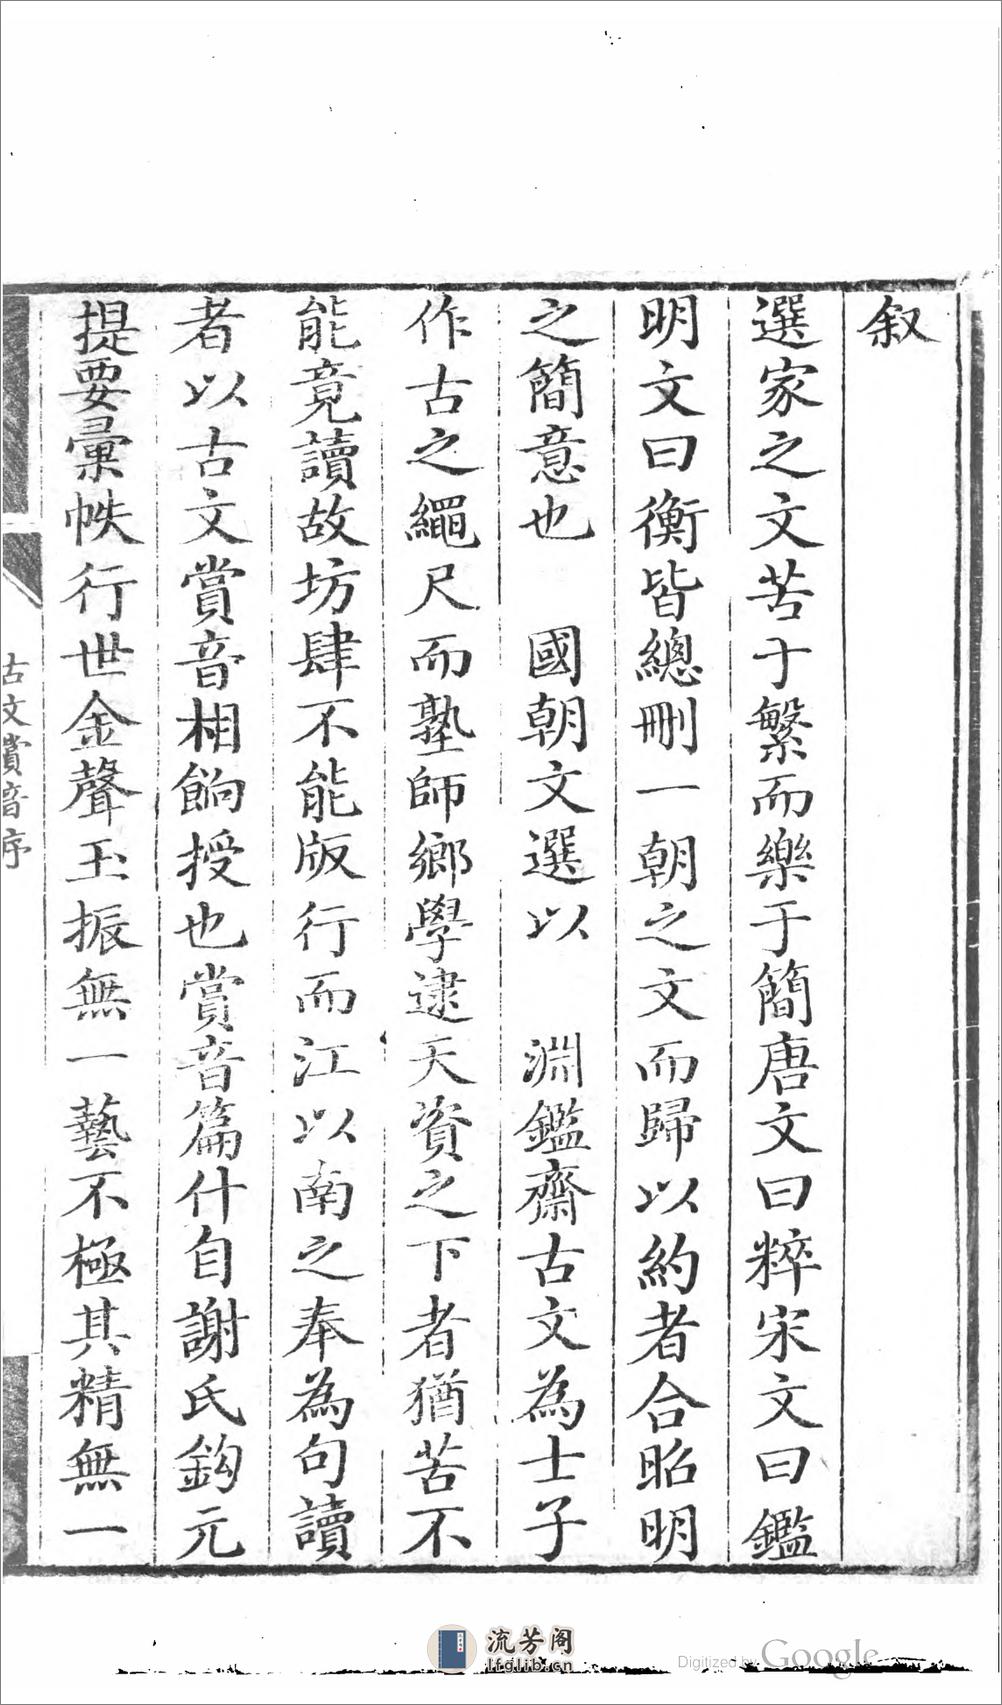 叙
選家之文苦于繁而樂于簡唐文曰粹宋文曰鑑
明文曰衡皆總刪一朝之文而歸以約者合昭明
之簡意也　國朝文選以　淵鑑齋古文為士子
作古之繩尺而塾師鄉學逮天資之下者猶苦不
能竟讀故坊肆不能版行而江以南之奉為句讀
者以古文賞音相餉授也賞音篇什自謝氏鈎元
提要彙帙行世金聲玉振無一藝不極其精無一
古文賞音序
流芳阁
lfglib.cn
Digitized by Google